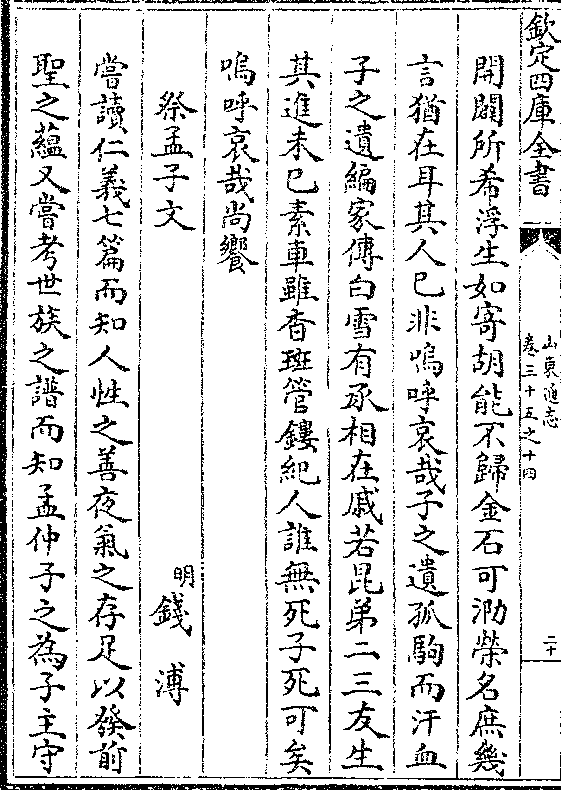 欽定四庫全書
山東通志
卷三十五之十四
二十
開闢所希浮生如寄胡能不歸金石可泐榮名庶幾
言猶在耳其人已非嗚呼哀哉子之遺孤駒而汗血
子之遺編家傳白雪有丞相在戚若昆弟二三友生
其進未已素車雖杳班管鏤紀人誰無死子死可矣
嗚呼哀哉尚饗
祭孟子文
明 錢溥
嘗讀仁義七篇而知人性之善夜氣之存足以發前
聖之蘊又嘗考世族之譜而知孟仲子之為子主守